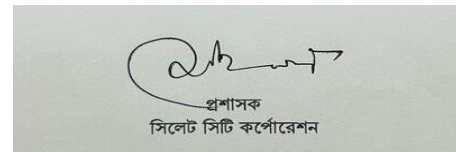 প্রশাসক
সিলেট সিটি কর্পোরেশন